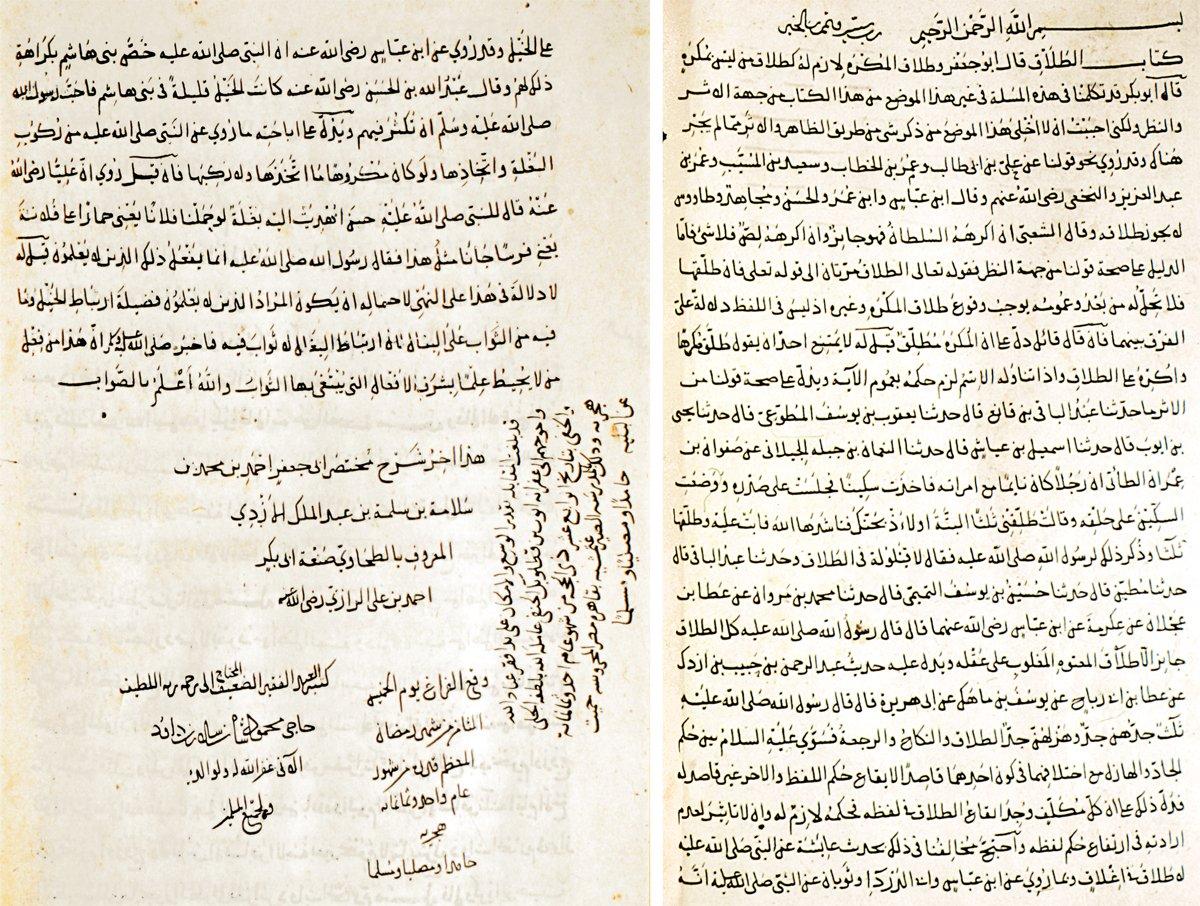 بسم الله الرحمن الرحيم رب يسر وتمم بالخير
كتاب الطلاق قال ابو جعفر وطلاق المكره لازم له كطلاق من ليس بمكره
قال ابو بكر قد تكلمنا في هذه المسلة في غير هذا الموضع من هذا الكتاب من جهة الاثر
والنظر ولكني احببت ان لا اخلي هذا الموضع من ذكر شي من طريق الظاهر والاثر مما لم يجز
هناك وقد روي نحو قولنا عن علي بن ابي طالب وعمر بن الخطاب وسعيد بن المسيب وعمر بن
عبد العزيز والنخعي رضي الله عنهم وقال ابن عباس وابن عمر والحسن ومجاهد وطاووس
لا يجوز طلاقه وقال الشعبي ان اكرهه السلطان فهو جايز وان اكرهه لص فلا شي فاما
الدليل على صحة قولنا من جهة النظر فقوله تعالى الطلاق مرتان الى قوله تعالى فان طلقها
فلا تحل له من بعد وعمومه يوجب وقوع طلاق المكره وغيره اذ ليس في اللفظ دلالة على
الفرق بينهما فان قال قائل دل على ان المكره مطلق قيل له لا يمتنع احد ان يقول طلق مكرها
واكره على الطلاق واذا تناوله الاسم لزم حكمه بعموم الآية ويدل على صحة قولنا من
الاثر ما حدثنا عبد الباقي بن قانع قال حدثنا يعقوب بن يوسف المطوعي قال حدثنا يحيى
بن ايوب قال حدثنا اسمعيل بن عياش قال حدثنا النعمان بن جبله الجيلاني عن صفوان بن
عمران الطائي ان رجلا كان نايما مع امراته فاخذت سكينا فجلست على صدره ووضعت
السكين على حلقه وقالت طلقني ثلثا البتة اولا اذبحنك فناشدها الله فابت عليه وطلقها
ثلثا وذكر ذلك لرسول الله صلى الله عليه فقال لا قيلولة في الطلاق وحدثنا عبد الباقي قال
حدثنا مطين قال حدثنا حسين بن يوسف التميمي قال حدثنا محمد بن مروان عن عطا بن
عجلان عن عكرمة عن ابن عباس رضي الله عنهما قال قال رسول الله صلى الله عليه كل الطلاق
جايز الا طلاق المعتوه المغلوب على عقله ويدل عليه حديث عبد الرحمن بن حبيب بن اردك
عن عطا بن ابي رباح عن يوسف بن ماهك عن ابي هريرة قال قال رسول الله صلى الله عليه
ثلث جدهن جد وهزلهن جد الطلاق والنكاح والرجعة فسوى عليه السلام بين حكم
الجاد والهازل مع اختلافهما في كون احدهما قاصدا لايقاع حكم اللفظ والاخر غير قاصد له
فدل ذلك على ان كل مكلف وجد ايقاع الطلاق في لفظه فحكمه لازم له وان لا تاثير لعدم
ارادته في ارتفاع حكم لفظه واحتج مخالفنا في ذلك بحديث عايشة عن النبي صلى الله عليه
لا طلاق في اغلاق وبما روي عن ابن عباس وابي الدردا وثوبان عن النبي صلى الله عليه انه
على الخيل وقد روي عن ابن عباس رضي الله عنه ان النبي صلى الله عليه خص بني هاشم بكراهة
ذلك لهم وقال عبد الله بن الحسن رضي الله عنه كانت الخيل قليلة في بني هاشم فاحب رسول الله
صلى الله عليه وسلم ان تكثر فيهم ويدل على اباحته ما روي عن النبي صلى الله عليه من ركوب
البغلة واتخاذها ولو كان مكروها ما اتخذها ولا ركبها فان قيل روي ان عليا رضي الله
عنه قال للنبي صلى الله عليه حين اهديت اليه بغلة لو حملنا فلانا يعني حمارا على فلانة
يعني فرسا جانا مثل هذا فقال رسول الله صلى الله عليه انما يفعل ذلك الذين لا يعلمون قيل له
لا دلالة في هذا على النهي لاحتماله ان يكون المراد الذين لا يعلمون فضيلة ارتباط الخيل وما
فيه من الثواب على البغال لان ارتباط البغال لا ثواب فيه فاخبر صلى الله عليه وسلم ان هذا من فعل
من لا يحيط علما بشرف الافعال التي يبتغى بها الثواب والله اعلم بالصواب
هذا اخر شرح مختصر ابي جعفر احمد بن محمد بن
سلامة بن سلمة بن عبد الملك الازدي
المعروف بالطحاوي صنعة ابي بكر
احمد بن علي الرازي رضي الله عنه
وقع الفراغ يوم الخميس
الثامن من شهر رمضان
المعظم قدره من شهور
عام واحد وثمانمائة
هجرية
حامدا ومصليا ومسلما
كتبه العبد الفقير الضعيف المحتاج الى رحمة ربه اللطيف
حاجي محمد
غفر الله له ولوالديه
ولجميع المسلمين
هجرية وذلك بالمدرسة بقاهرة مصر المحروسة حميت
عن البلية حامدا ومصليا ومسلما